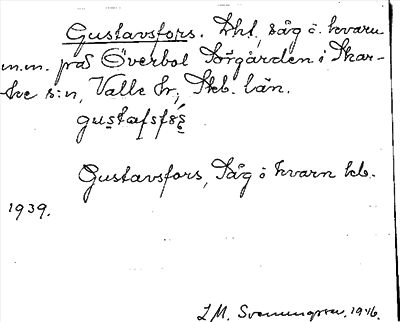 Gustavsfors. Lht, såg o. kvarn
m.m. på Överbol Sörgården i Skar-
ke s:n, Valle hr, Skb. län.
gustafsfors
Gustavsfors, Såg o kvarn kb.
1939.
L.M. Svenungsson, 1946.